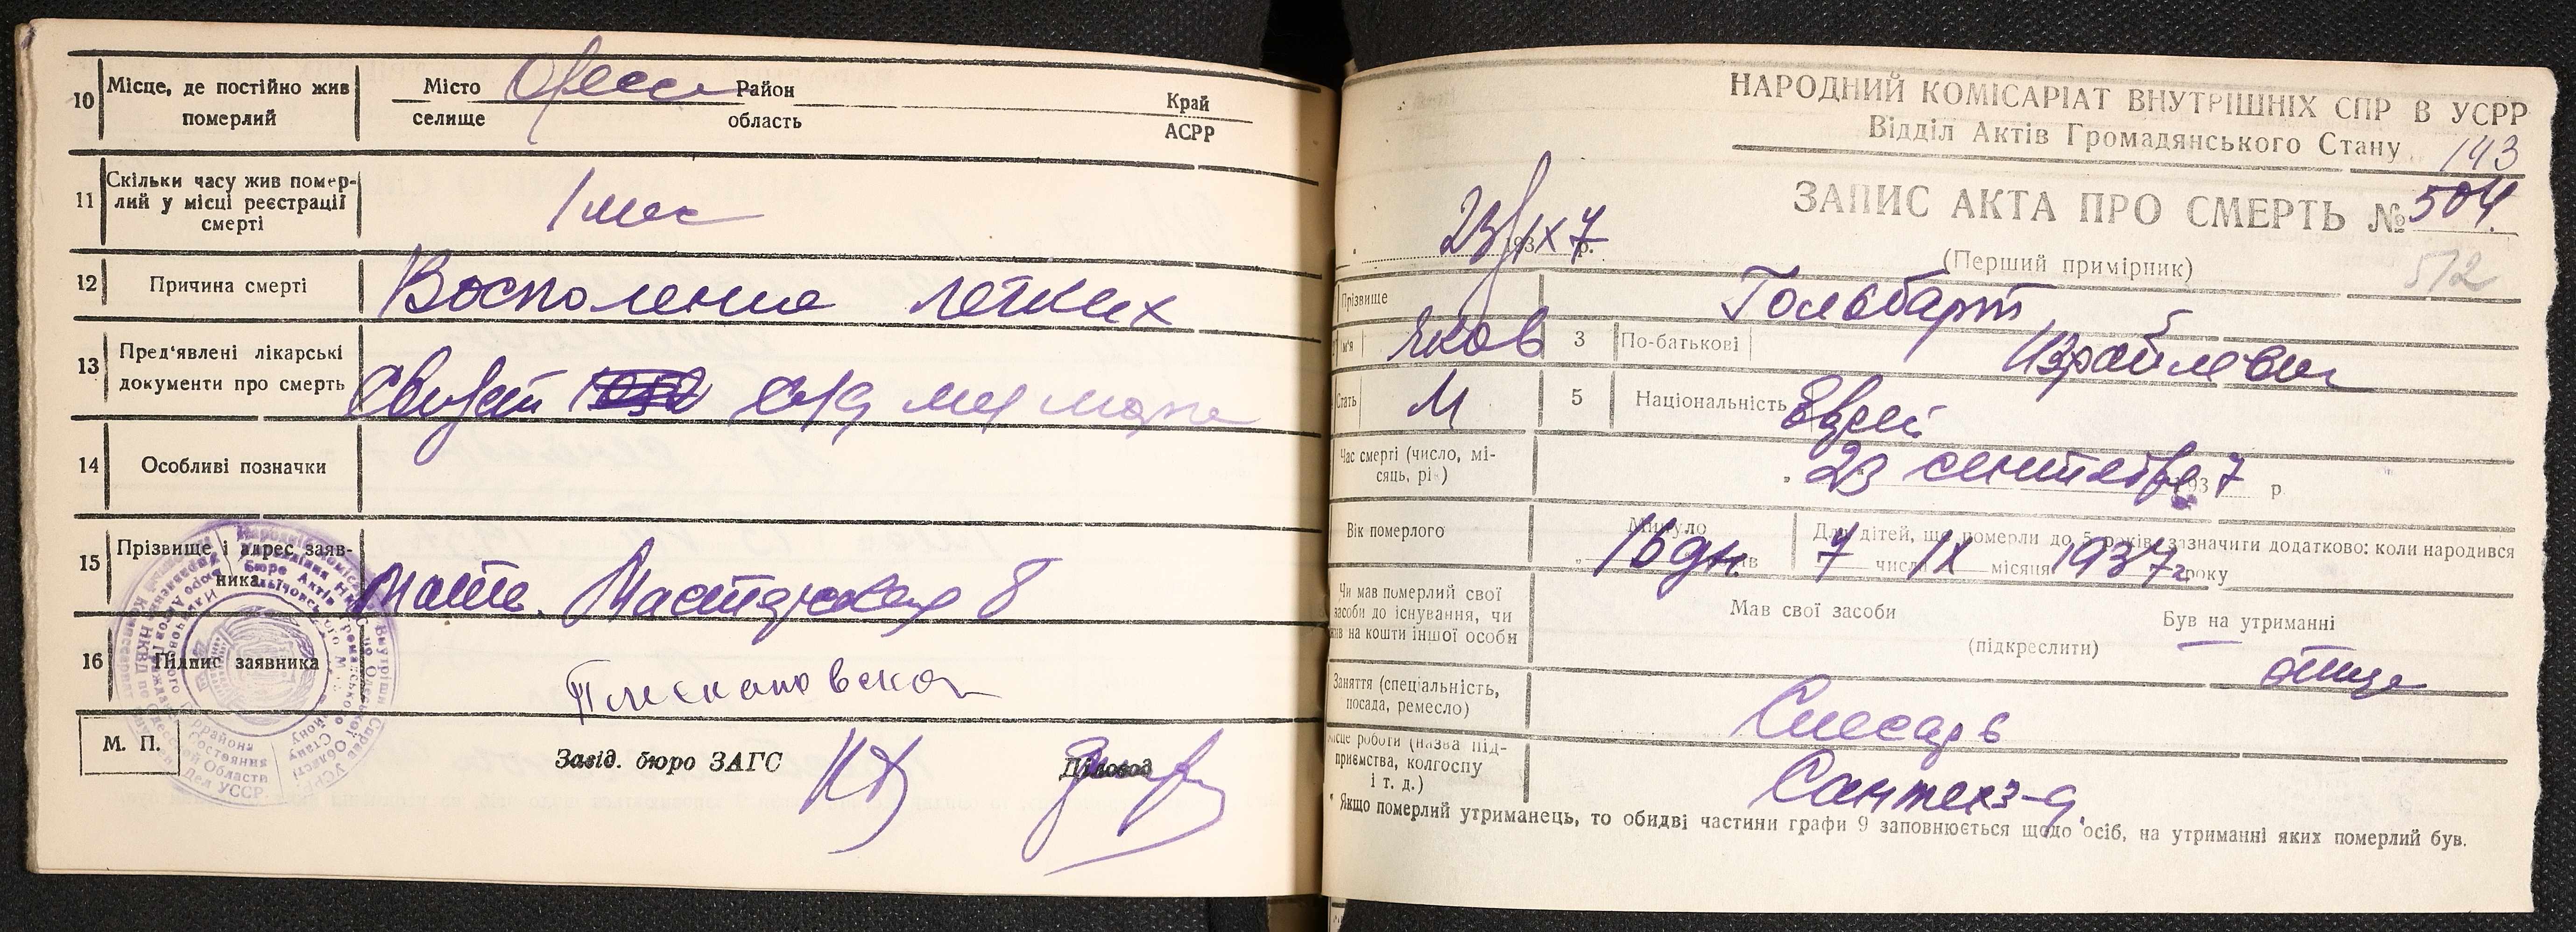 10
Місце, де постійно жив
померлий
Місто
селище
Одесса
Район
область
Край
АСРР
11
Скільки часу жив помер-
лий у місці реєстрації
смерті
1 мес
12
Причина смерті
Восполение легких
13
Пред'явлені лікарські
документи про смерть
14
Особливі позначки
15
Прізвище і адрес заяв-
ника
Мать. Мастерская 8
16
Підпис заявника
М. П.
Завід. бюро ЗАГС
Діловод
НАРОДНИЙ КОМІСАРІАТ ВНУТРІШНІХ СПР В УСРР
Відділ Актів Громадянського Стану
143
ЗАПИС АКТА ПРО СМЕРТЬ № 504
23/IX 1937 р.
(Перший примірник)
512
Прізвище
Гольбарт
Ім'я
Яков
3
По-батькові
Израйлевич
Стать
М
5
Національність
Еврей
Час смерті (число, мі-
сяць, рік)
23 сентября 1937 р
Вік померлого
Минуло
16 дн.
Для дітей, що померли до 5 років, зазначити додатково: коли народився
7 числа IX місяця 1937 г року
Чи мав померлий свої
засоби до існування, чи
жив на кошти іншої особи
Мав свої засоби
Був на утриманні
(підкреслити)
отца
Заняття (спеціальність,
посада, ремесло)
Слесарь
Місце роботи (назва під-
приємства, колгоспу
і т. д.)
Сантехз-д.
* Якщо померлий утриманець, то обидві частини графи 9 заповнюється щодо осіб, на утриманні яких померлий був.